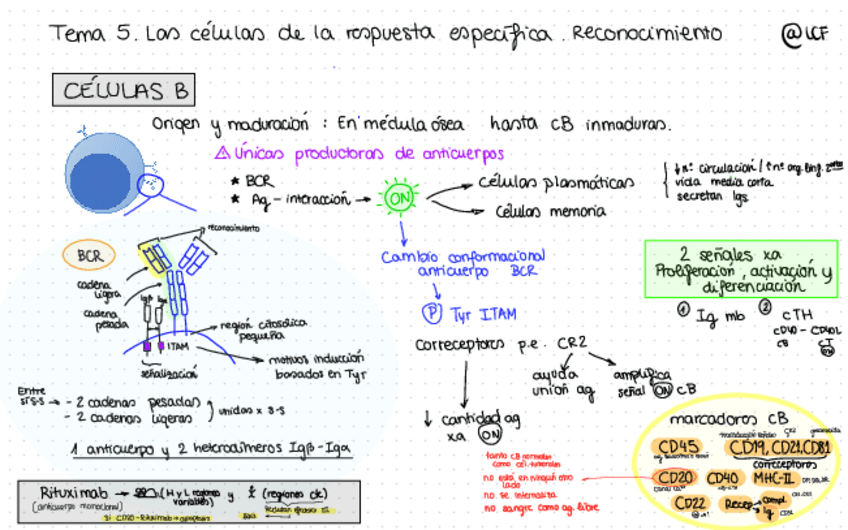 Tema 5. Las células de la respuesta específica. Reconocimiento
@LCF
CÉLULAS B
Origen y maduración : En médula ósea hasta CB inmaduras.
⚠ Únicas productoras de anticuerpos
* BCR
* Ag - interacción → ON
células plasmáticas
células memoria
↓ nº circulación / ↑ nº org. linf. 2
vida media corta
secretan Igs
BCR
reconocimiento
cadena ligera
cadena pesada
Igβ Igα
región citosólica
pequeña
ITAM
motivos inducción
basados en Tyr
señalización
Cambio conformacional
anticuerpo BCR
P Tyr ITAM
correceptores p.e. CR2
↓ cantidad ag
xa ON
ayuda
unión ag
amplifica
señal ON CB
2 señales xa
Proliferación, activación y
diferenciación
① Ig mb
② cTH
CD40 - CD40L
CB
CT
ON
Entre
sí s-s → - 2 cadenas pesadas
- 2 cadenas ligeras
unidas x s-s
1 anticuerpo y 2 heterodímeros Igβ-Igα
marcadores CB
CR2
CD45
CD19, CD21, CD81
correceptores
CD20
CD40
MHC-II
CD22
Recep
compl.
Ig
tanto CB normales
como cél. tumorales
no está en ningún otro
lado
no se internaliza
no sangre como ag. libre
Rituximab →
(H y L
variables) y
(regiones cte)
(anticuerpo monoclonal)